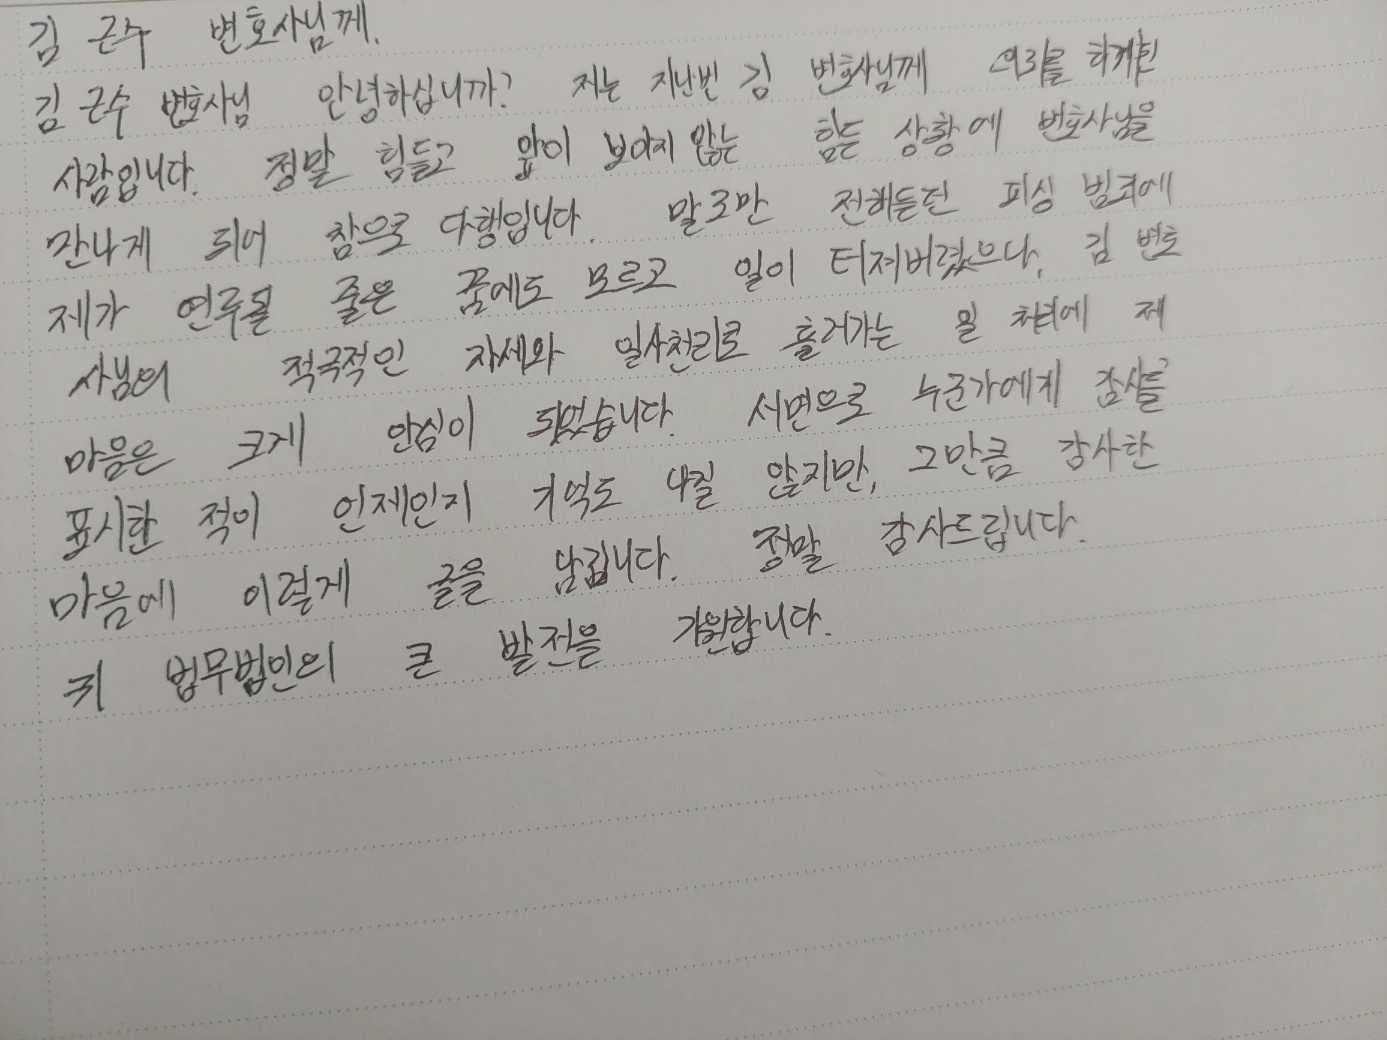 김 근수 변호사님께.
김 근수 변호사님 안녕하십니까? 저는 지난번 김 변호사님께 의뢰를 하게된
사람입니다. 정말 힘들고 앞이 보이지 않는 힘든 상황에 변호사님을
만나게 되어 참으로 다행입니다. 말로만 전해듣던 피싱 범죄에
제가 연루될 줄은 꿈에도 모르고 일이 터져버렸으나, 김 변호
사님의 적극적인 자세와 일사천리로 흘러가는 일 처리에 제
마음은 크게 안심이 되었습니다. 서면으로 누군가에게 감사를
표시한 적이 언제인지 기억도 나질 않지만, 그만큼 감사한
마음에 이렇게 글을 남깁니다. 정말 감사드립니다.
귀 법무법인의 큰 발전을 기원합니다.